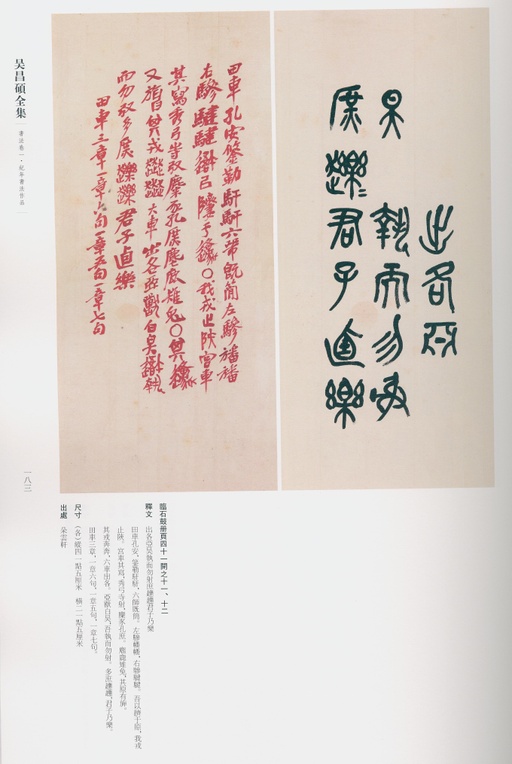 吴昌碩全集
書法卷一·紀年書法作品
一八三
出各亞
昊執而勿射
庶䟏君子逌樂
田車孔安鋚勒馯馯六師既簡左驂旛旛
右驂騝騝
其寫秀弓寺射麋豕孔庶麀鹿雉兔
大車出各亞
白昊執
而勿射多庶䟏君子逌樂
田車三章一章六句一章五句一章七句
臨石鼓册頁四十一開之十一、十二
釋文
出各亞昊執而勿射庶䟏䟏君子乃樂
田車孔安，鋚勒馯馯，六師既簡。左驂旛旛，右驂騝騝，吾以隮于原。我戎
止陜，宮車其寫，秀弓寺射，麋豕孔庶，麀鹿雉兔，其原有紳，
其戎奔奔，大車出各，亞獸白昊，吾執而勿射，多庶䟏䟏，君子乃樂。
田車三章，一章六句，一章五句，一章七句。
尺寸
（各）縱四一點五厘米　橫二一點五厘米
出處
朵雲軒